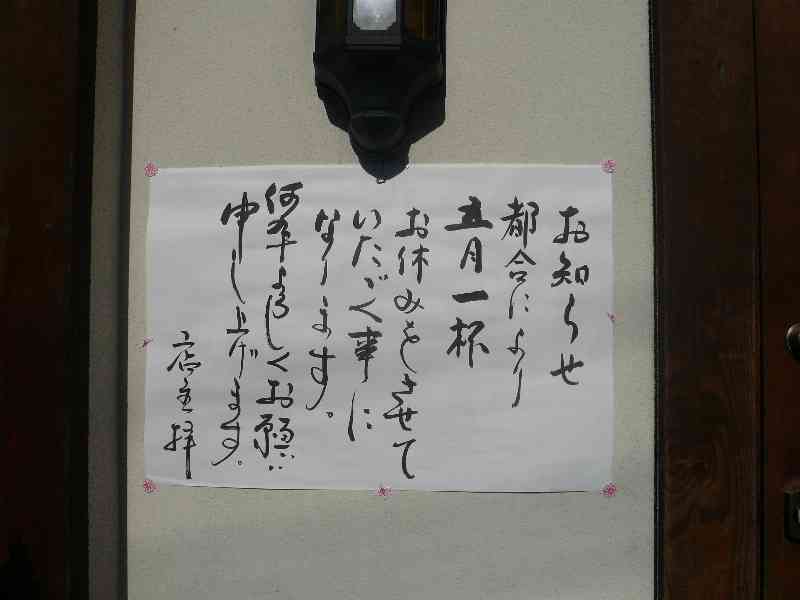 お知らせ
都合により
五月一杯
お休みをさせて
いただく事に
なります。
何卒よろしくお願い
申し上げます。
店主拝